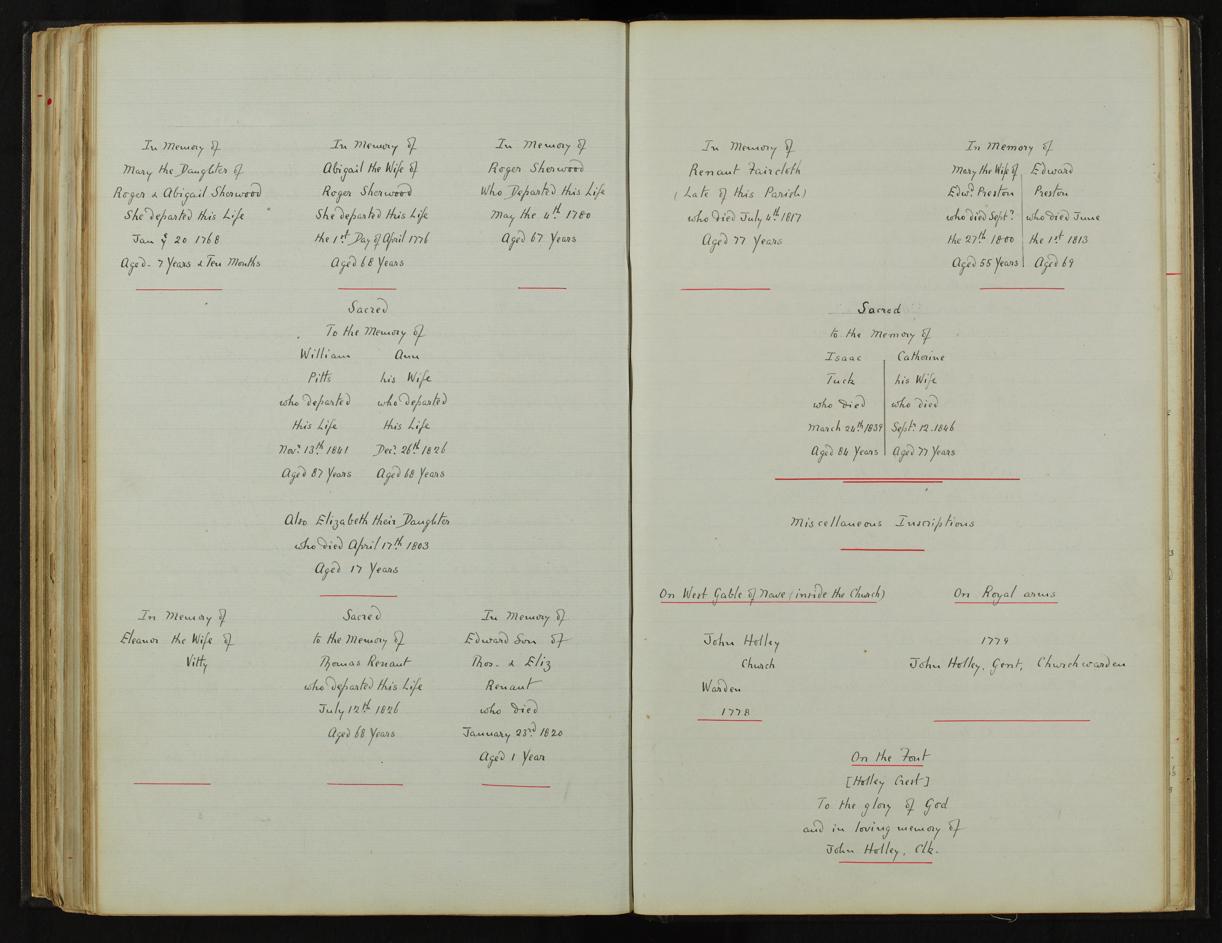 In Memory of
Mary the Daughter of
Roger & Abigail Sherwood
She departed this Life
Jany 20 1768
Aged - 7 Years & Ten Months
In Memory of
Abigail the Wife of
Roger Sherwood
She departed this Life
the 1st Day of April 1776
Aged 68 Years
In Memory of
Roger Sherwood
Who Departed this Life
May the 4th 1780
Aged 67 Years
Sacred
To the Memory of
William
Pitts
who departed
this Life
Novr 13th 1841
Aged 87 Years
Ann
his Wife
who departed
this Life
Decr 26th 1826
Aged 68 Years
Also Elizabeth their Daughter
who died April 17th 1803
Aged 17 Years
In Memory of
Eleanor the Wife of
Vitty
Sacred
to the Memory of
Thomas Renaut
who departed this Life
July 12th 1826
Aged 68 Years
In Memory of
Edward Son of
Thos. & Eliz
Renaut
who died
January 23rd 1820
Aged 1 Year
In Memory of
Renaut Faircloth
(Late of this Parish)
who died July 4th 1817
Aged 77 Years
In Memory of
Mary the Wife of
Edwd Preston
who died Septr
the 27th 1800
Aged 55 Years
Edward
Preston
who died June
the 1st 1813
Aged 69
Sacred
to the Memory of
Isaac
Tuck
who died
March 24th 1839
Aged 84 Years
Catherine
his Wife
who died
Septr 12. 1846
Aged 77 Years
Miscellaneous Inscriptions
On West Gable of Nave (inside the Church)
John Holley
Church
Warden
1778
On Royal arms
1779
John Holley, Gent, Churchwarden
On the Font
[Holley Crest]
To the glory of God
and in loving memory of
John Holley, Clk.